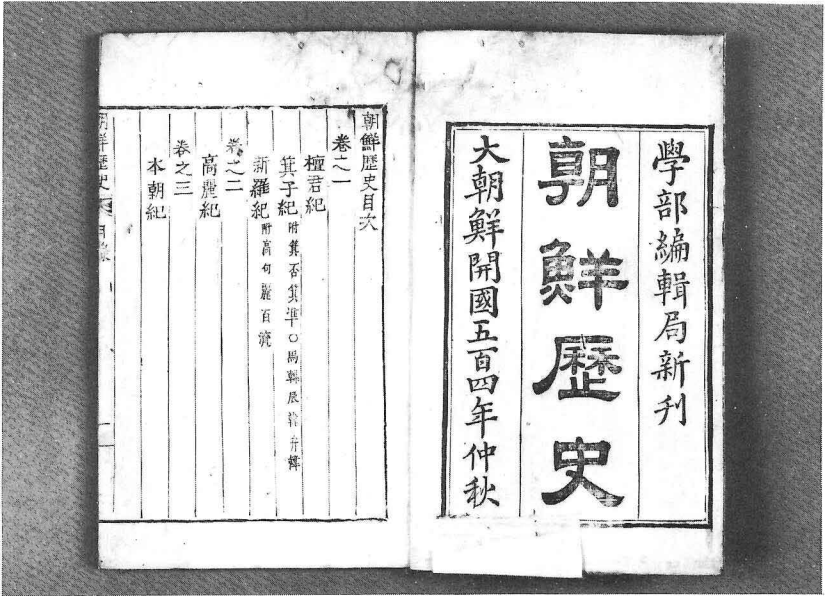 學部編輯局新刊
朝鮮歷史
大朝鮮開國五百四年仲秋
朝鮮歷史目次
卷之一
檀君紀
箕子紀 附箕否箕準○馬韓辰韓弁韓
新羅紀 附高句麗百濟
卷之二
高麗紀
卷之三
本朝紀
朝鮮歷史 目錄